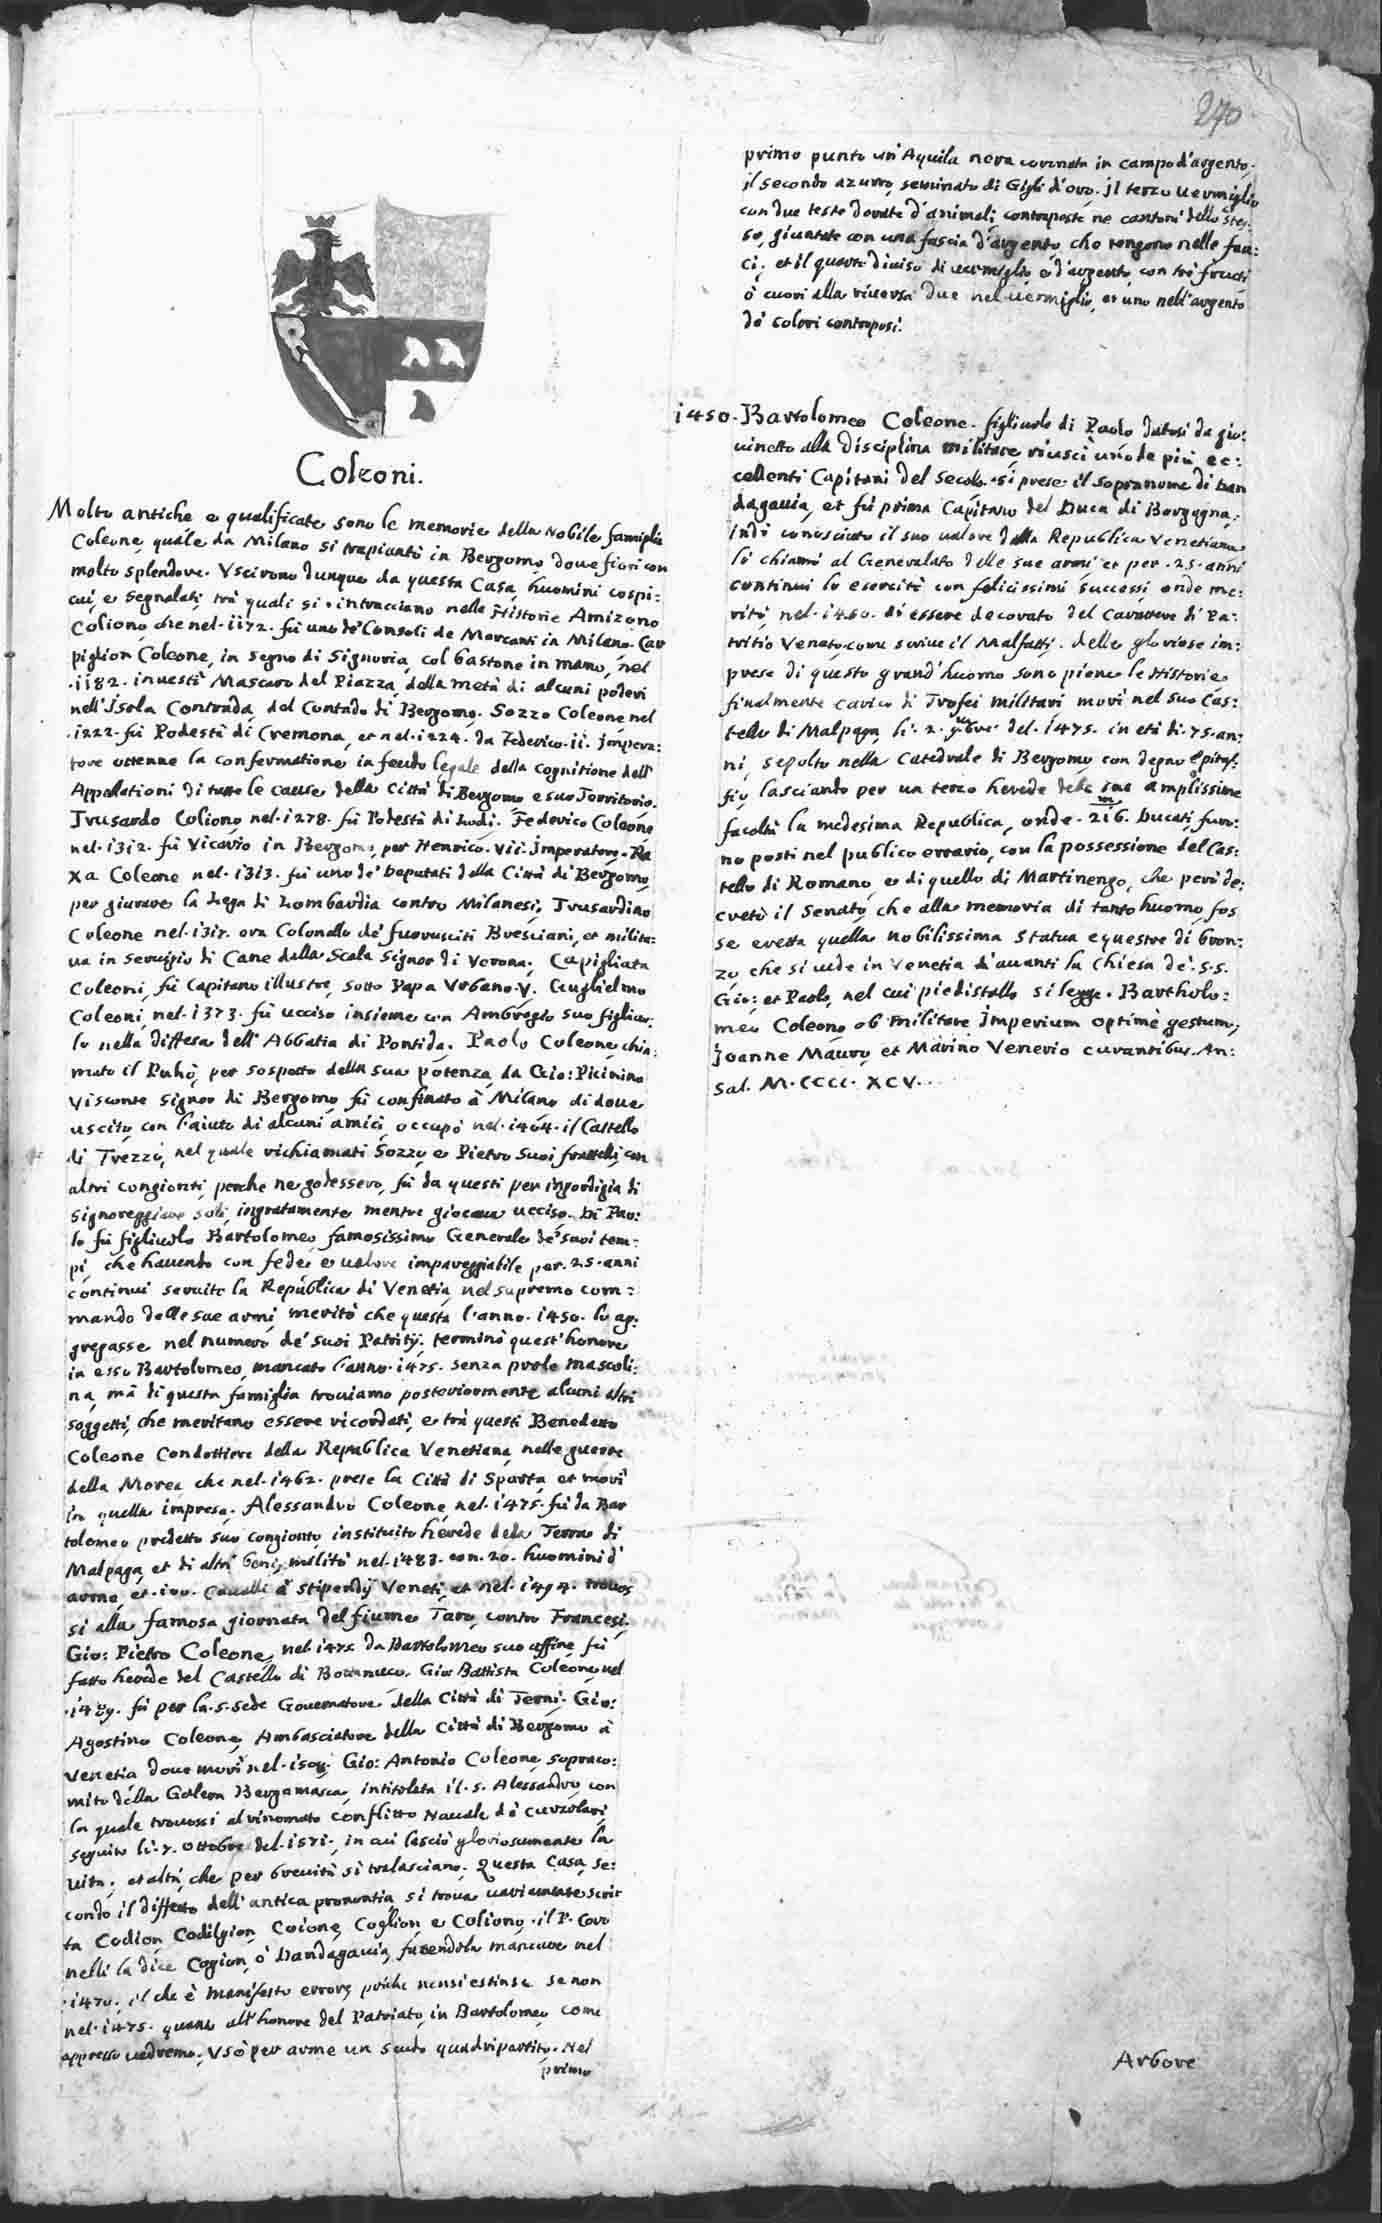 270
Coleoni.
Molto antiche e qualificate sono le memorie della Nobile famiglia
Coleone, quale da Milano si trapiantò in Bergomo, doue fiorì con
molto splendore. Vscirono dunque da questa Casa huomini cospi:
cui, e segnalati, trà quali si rintracciano nelle Historie Amizono
Coliono, che nel .1172. fù uno de' Consoli de Mercanti in Milano. Cav
piglion Coleone, in segno di Signoria, col bastone in mano, nel
.1182. inuestì Mascaro del Piazza della metà di alcuni poderi
nell'Isola Contrada del Contado di Bergomo. Sozzo Coleone nel
.1222. fù Podestà di Cremona, et nel .1224. da Federico .ii. Impera:
tore ottenne la confermatione in feudo legale della cognitione dell'
Appellationi di tutte le cause della Città di Bergomo e suo Territorio.
Trusardo Coliono nel .1278. fù Podestà di Lodi. Federico Coleone
nel .1312. fù Vicario in Bergomo, per Henrico .Vii. Imperatore. Ra
xa Coleone nel .1313. fù uno de' Deputati della Città di Bergomo
per giurare la Lega di Lombardia contro Milanesi; Trusardino
Coleone nel .1317. era Colonello de' fuorusciti Bresciani, et milita:
ua in seruigio di Cane della Scala Signor di Verona. Capigliata
Coleoni, fù Capitano illustre, sotto Papa Vrbano .V. Guglielmo
Coleoni, nel .1373. fù ucciso insieme con Ambrogio suo figliuo:
lo nella diffesa dell'Abbatia di Pontida. Paolo Coleone, chia:
mato il Puhò, per sospetto della sua potenza, da Gio: Picinino
Visconte Signor di Bergomo fù confinato à Milano di doue
uscito, con l'aiuto di alcuni amici, occupò nel .1404. il Castello
di Trezzo, nel quale richiamati Sozzo, e Pietro Suoi fratelli, con
altri congionti, perche ne godessero, fù da questi per ingordigia di
signoreggiare soli, ingratamente mentre giocaua ucciso. Di Pao:
lo fù figliuolo Bartolomeo famosissimo Generale de' suoi tem:
pi, che hauendo con fede, e ualore impareggiabile per .25. anni
continui seruito la Republica di Venetia, nel supremo com:
mando delle sue armi, meritò che questa l'anno .1450. lo ag:
gregasse nel numero de' suoi Patritij. terminò quest'honore
in esso Bartolomeo, mancato l'anno .1475. senza prole mascoli:
na, mà di questa famiglia trouiamo posteriormente alcuni altri
soggetti, che meritano essere ricordati, e trà questi Benedetto
Coleone Condottiere della Republica Venetiana, nelle guerre
della Morea che nel .1462. prese la Città di Sparta, et morì
in quella impresa. Alessandro Coleone, nel .1475. fù da Bar
tolomeo predetto suo congionto, instituito herede dela Terra di
Malpaga, et di altri beni, militò nel .1483. con .20. huomini d'
arme, et .100. Caualli à stipendij Veneti, et nel .1494. trouos
si alla famosa giornata del fiume Taro, contro Francesi.
Gio: Pietro Coleone, nel .1475. da Bartolomeo suo affine fù
fatto herede del Castello di Bottanuco. Gio: Battista Coleone, nel
.1489. fù per la .S. Sede Gouernatore della Città di Terni. Gio:
Agostino Coleone, Ambasciatore della Città di Bergomo à
Venetia doue morì nel Gio: Antonio Coleone, sopraco:
mito della Galera Bergamasca, intitolata il .S. Alessandro con
la quale trouossi al rinomato conflitto Nauale de Curzolari,
seguito li .7. ottobre del .1571., in cui lasciò gloriosamente la
uita; et altri, che per breuità si tralasciano. Questa Casa, se:
condo il diffetto dell'antica prononcia, si troua uariamente scrit
ta Codion, Codilgion, Coione, Coglion e Coliono. il P. Coro
nelli la dice Cogion, ò Dandagauia, facendola mancare nel
.1470. il che è manifesto errore, poiche non si estinse se non
nel .1475. quanto all'honore del Patriato, in Bartolomeo, come
appresso uedremo. Vsò per arme un scudo quadripartito. Nel
primo
primo punto un'Aquila nera coronata in campo d'argento.
il secondo azurro, seminato di Gigli d'oro. il terzo uermiglio
con due teste dorate d'animali, contraposte ne cantoni dello stes:
so, giuntate con una fascia d'argento, che tengono nelle fau:
ci. et il quarto diuiso di uermiglio, e d'argento, con trè
ò cuori alla riuersa due nel uermiglio, et uno nell'argento
de' colori contraposi.
1450. Bartolomeo Coleone. figliuolo di Paolo datosi da gio:
uinetto alla disciplina militare, riuscì uno de più ec:
cellenti Capitani del secolo. si prese il sopranome di Dan
dagauia, et fù prima Capitano del Duca di Borgogna.
Indi conosciuto il suo ualore dalla Republica Venetiana
lo chiamò al Generalato delle sue armi et per .25. anni
continui lo esercitò con felicissimi successi, onde me:
ritò nel .1450. di essere decorato del Carattere di Pa:
tritio Veneto, come scriue il Malfatti. delle gloriose im:
prese di questo grand'huomo sono piene le Historie
finalmente carico di Trofei militari morì nel suo Cas:
tello di Malpaga, li .2. 9mbre del .1475. in età di .75. an:
ni, sepolto nella Catedrale di Bergomo con degno epitaf:
fio, lasciando per un terzo herede dela sua amplissime
facoltà la medesima Republica, onde .216.m Ducati furo:
no posti nel publico errario, con la possessione del Cas:
tello di Romano, e di quello di Martinengo, che però de:
cretò il Senato, che alla memoria di tanto huomo, fos
se eretta quella nobilissima Statua equestre di bron:
zo che si uede in Venetia d'auanti la Chiesa de' .S.S.
Gio: et Paolo, nel cui piedistallo si legge. Bartholo:
meo Coleono ob militare Imperium optimè gestum,
Joanne Mauro, et Marino Venerio curantibus. An:
Sal. M. CCCC. XCV.
Arbore